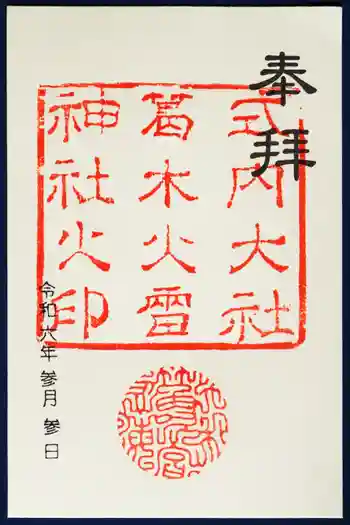 奉拝
式内大社
葛木火雷
神社之印
令和六年 参月 参日